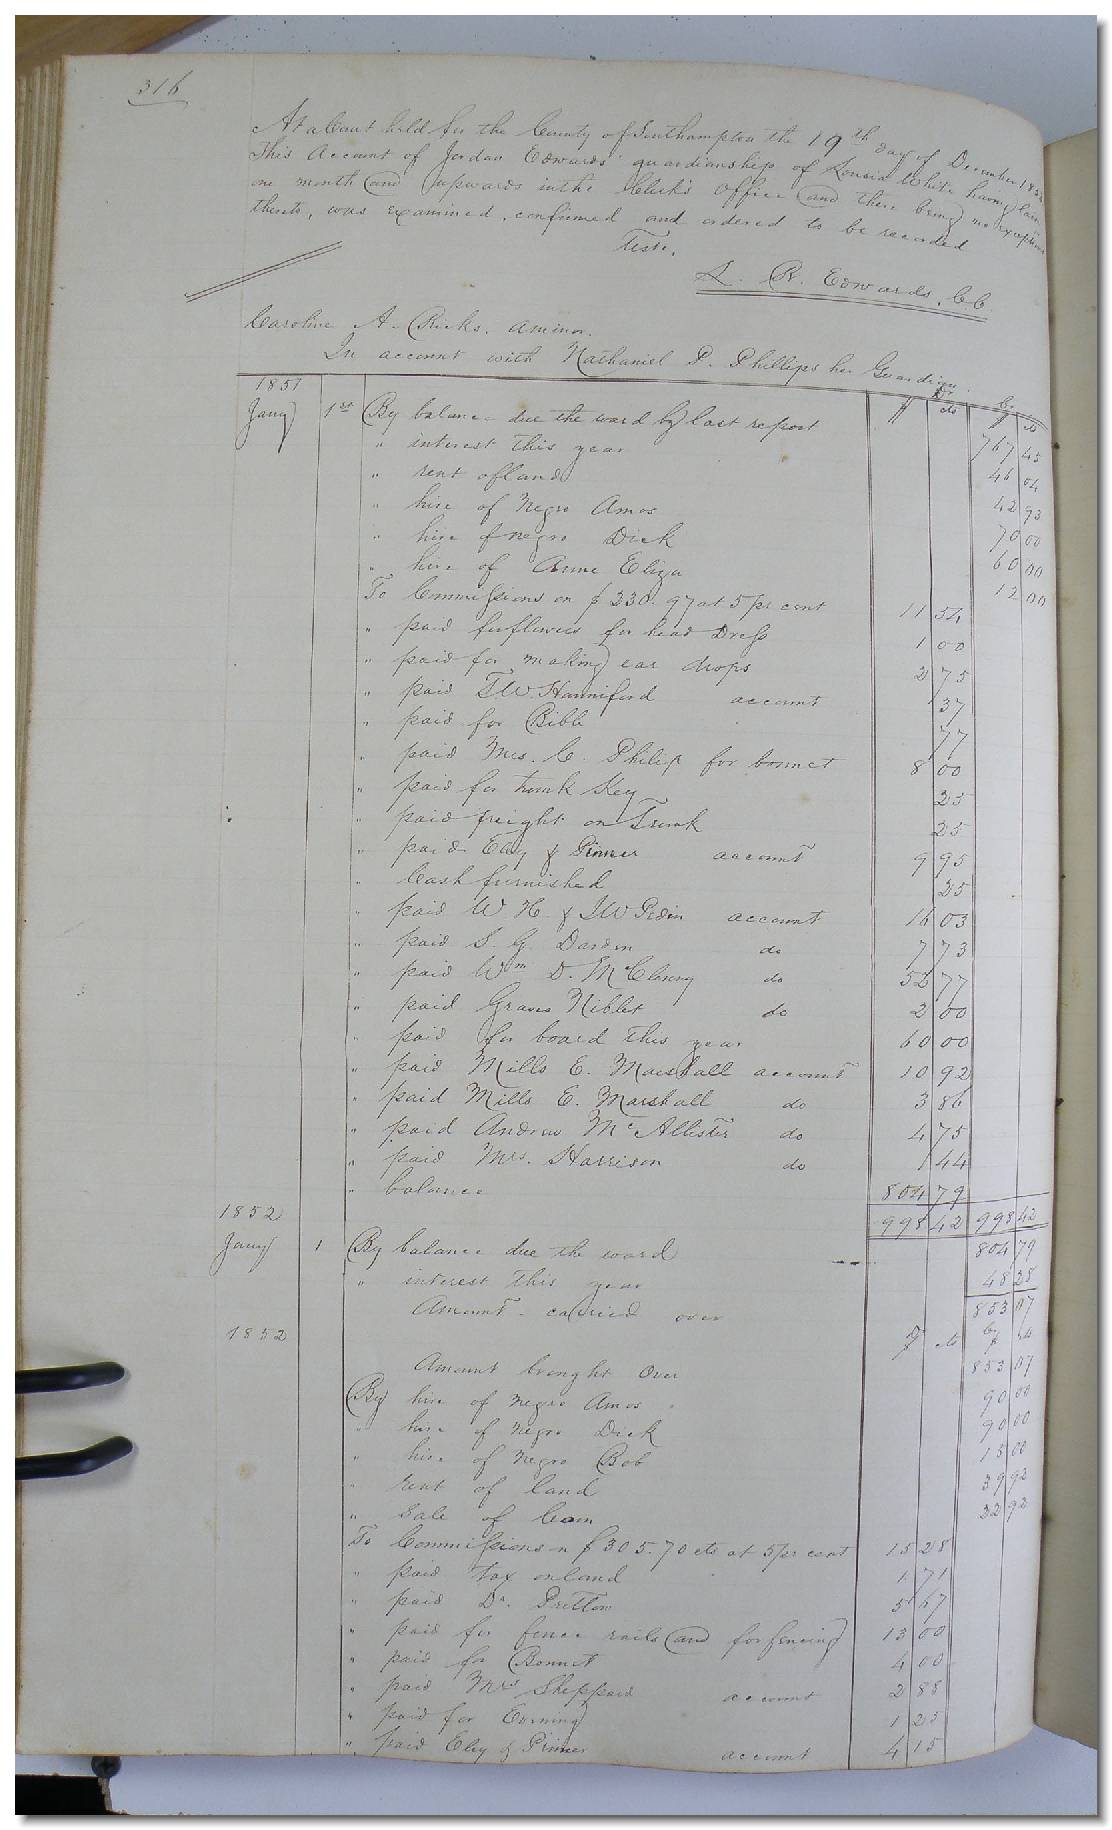 316
At a Court held for the County of Southampton the 19th day of December 1853
This Account of Jordan Edwards' guardianship of White having lain
one month and upwards in the Clerk's Office and there being no exceptions
thereto, was examined, confirmed and ordered to be recorded
Teste,
L. R. Edwards, CC
Caroline A. Ricks, a minor.
In account with Nathaniel P. Phillips her Guardian.
1851 Dr Cr
Jany 1st By balance due the ward by last report $ cts $ cts 767 45
" interest this year 46 04
" rent of land 42 93
" hire of Negro Amos 70 00
" hire of negro Dick 60 00
" hire of Anne Eliza 12 00
To Commissions on $230.97 at 5 pr cent 11 54
" paid for flowers for head Dress 1 00
" paid for making ear drops 2 75
" paid T W Hanniford account 37
" paid for Bible 77
" paid Mrs. C. Philip for bonnet 8 00
" paid for trunk Key 25
" paid freight on Trunk 25
" paid Eley & Pinner account 9 95
" Cash furnished 25
" paid W H & J W account 16 03
" paid S. G. Darden do 7 73
" paid Wm D. McCleny do 52 77
" paid Graves Niblet do 2 00
" paid for board this year 60 00
" paid Mills E. Marshall account 10 92
" paid Mills E. Marshall do 3 86
" paid Andrew McAllister do 4 75
" paid Mrs. Harrison do 1 44
" balance 804 79
1852 998 42 998 42
Jany 1 By balance due the ward 804 79
" interest this year 48 28
Amount carried over 853 07
1852 $ cts Cr $ cts
Amount brought Over 853 07
By hire of negro Amos 90 00
" hire of Negro Dick 90 00
" hire of Negro Bob 18 00
" rent of land 39 92
" Sale of Corn 22 92
To Commissions on $305.70 cts at 5 pr cent 15 28
" paid tax on land 1 71
" paid Dr. Pretlow 5 67
" paid for fence rails and for fencing 13 00
" paid for Bonnet 4 00
" paid Mrs Sheppard account 2 88
" paid for 1 25
" paid Eley & Pinner account 4 15